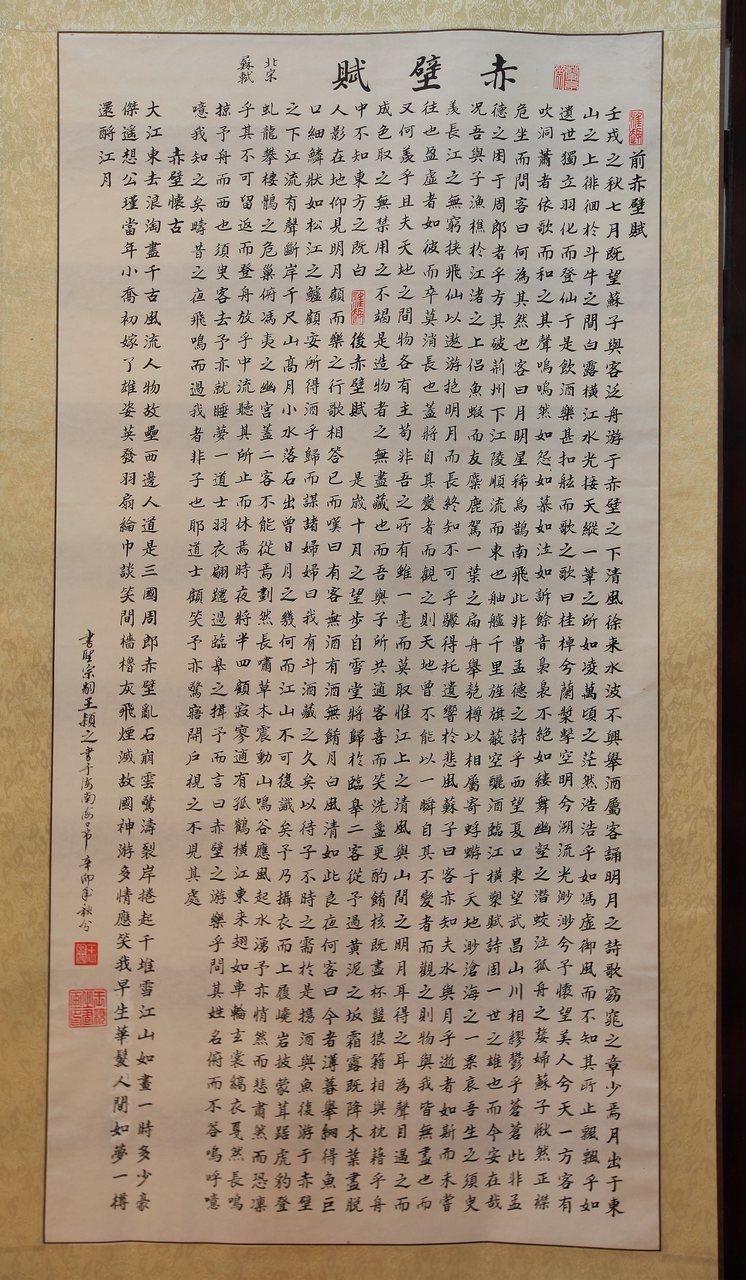 赤壁賦
北宋
蘇軾
前赤壁賦
壬戌之秋七月既望蘇子與客泛舟游于赤壁之下清風徐来水波不興舉酒屬客誦明月之詩歌窈窕之章少焉月出于東
山之上徘徊於斗牛之間白露橫江水光接天縱一葦之所如凌萬頃之茫然浩浩乎如馮虛御風而不知其所止飄飄乎如
遺世獨立羽化而登仙于是飲酒樂甚扣舷而歌之歌曰桂棹兮蘭槳擊空明兮溯流光渺渺兮予懷望美人兮天一方客有
吹洞蕭者依歌而和之其聲嗚嗚然如怨如慕如泣如訴餘音裊裊不絕如縷舞幽壑之潛蛟泣孤舟之嫠婦蘇子愀然正襟
危坐而問客曰何為其然也客曰月明星稀烏鵲南飛此非曹孟德之詩乎西望夏口東望武昌山川相繆鬱乎蒼蒼此非孟
德之困于周郎者乎方其破荊州下江陵順流而東也舳艫千里旌旗蔽空釃酒臨江橫槊賦詩固一世之雄也而今安在哉
况吾與子漁樵於江渚之上侶魚蝦而友麋鹿駕一葉之扁舟舉匏樽以相屬寄蜉蝣于天地渺滄海之一粟哀吾生之須臾
羨長江之無窮挾飛仙以遨游抱明月而長終知不可乎驟得托遺響於悲風蘇子曰客亦知夫水與月乎逝者如斯而未嘗
往也盈虛者如彼而卒莫消長也蓋將自其變者而觀之則天地曾不能以一瞬自其不變者而觀之則物與我皆無盡也而
又何羨乎且夫天地之間物各有主苟非吾之所有雖一毫而莫取惟江上之清風與山間之明月耳得之耳為聲目遇之而
成色取之無禁用之不竭是造物者之無盡藏也而吾與子所共適客喜而笑洗盞更酌餚核既盡杯盤狼籍相與枕藉乎舟
中不知東方之既白 後赤壁賦 是歲十月之望步自雪堂將歸於臨皋二客從予過黃泥之坂霜露既降木葉盡脫
人影在地仰見明月顧而樂之行歌相答已而嘆曰有客無酒有酒無餚月白風清如此良夜何客曰今者薄暮舉網得魚巨
口細鱗狀如松江之鱸顧安所得酒乎歸而謀諸婦婦曰我有斗酒藏之久矣以待子不時之需於是攜酒與魚復游于赤壁
之下江流有聲斷岸千尺山高月小水落石出曾日月之幾何而江山不可復識矣予乃攝衣而上履巉岩披蒙茸踞虎豹登
虬龍攀棲鶻之危巢俯馮夷之幽宮蓋二客不能從焉劃然長嘯草木震動山鳴谷應風起水湧予亦悄然而悲肅然而恐凜
乎其不可留返而登舟放乎中流聽其所止而休焉時夜將半四顧寂寥適有孤鶴橫江東来翅如車輪玄裳縞衣戛然長鳴
掠予舟而西也須臾客去予亦就睡夢一道士羽衣翩躚過臨皋之揖予而言曰赤壁之游樂乎問其姓名俯而不答嗚呼噫
噫我知之矣疇昔之夜飛鳴而過我者非子也耶道士顧笑予亦驚寤開戶視之不見其處
赤壁懷古
大江東去浪淘盡千古風流人物故壘西邊人道是三國周郎赤壁亂石崩雲驚濤裂岸捲起千堆雪江山如畫一時多少豪
傑遙想公瑾當年小喬初嫁了雄姿英發羽扇綸巾談笑間檣櫓灰飛煙滅故國神游多情應笑我早生華髮人間如夢一樽
還酹江月
書聖宗嗣王穎之書于海南海口市辛卯年秋分